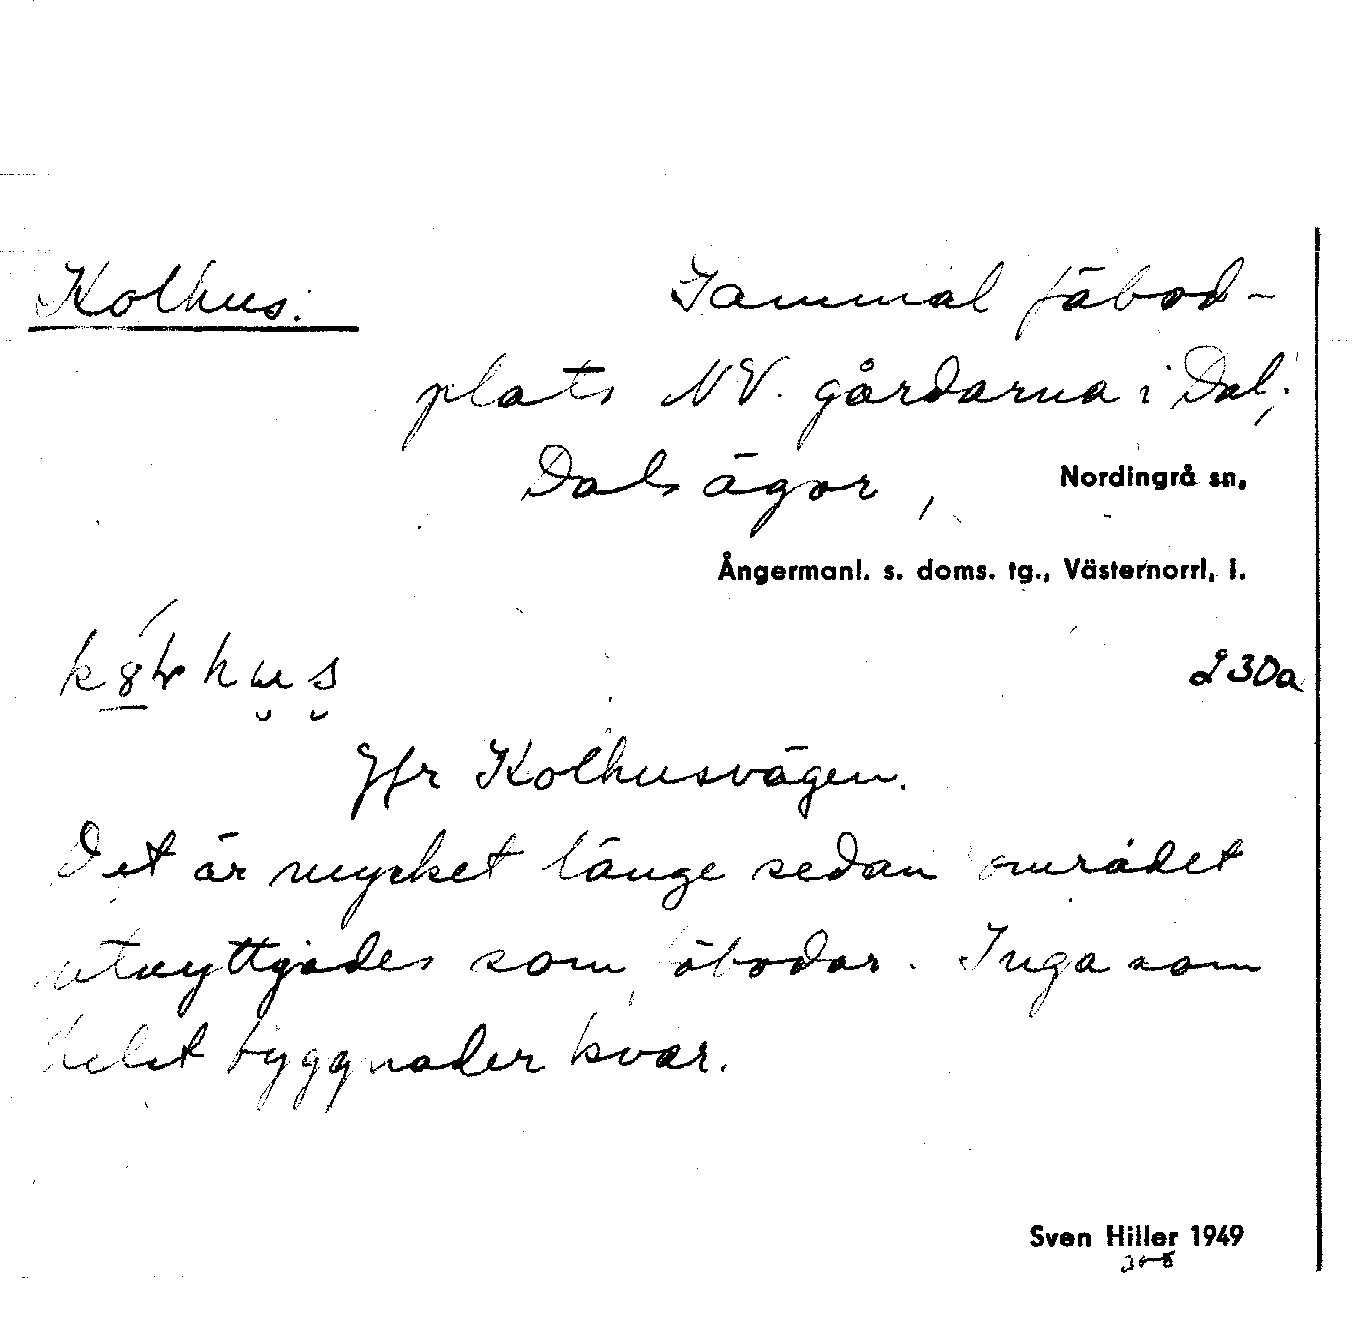 Kolhus. Gammal fäbod-
plats NV. gårdarna i Dal;
Dals ägor, Nordingrå sn,
Ångermanl. s. doms. tg., Västernorrl. l.
230a
Jfr Kolhusvägen.
Det är mycket länge sedan området
utnyttjades som fäbodar. Inga som
helst byggnader kvar.
Sven Hiller 1949